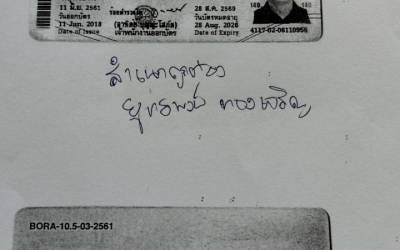 11 มิ.ย. 2561
วันออกบัตร
11 Jun. 2018
Date of Issue
เจ้าพนักงานออกบัตร
28 ส.ค. 2569
วันบัตรหมดอายุ
28 Aug. 2026
Date of Expiry
180
180
4117-02-06110956
สำเนาถูกต้อง
BORA-10.5-03-2561